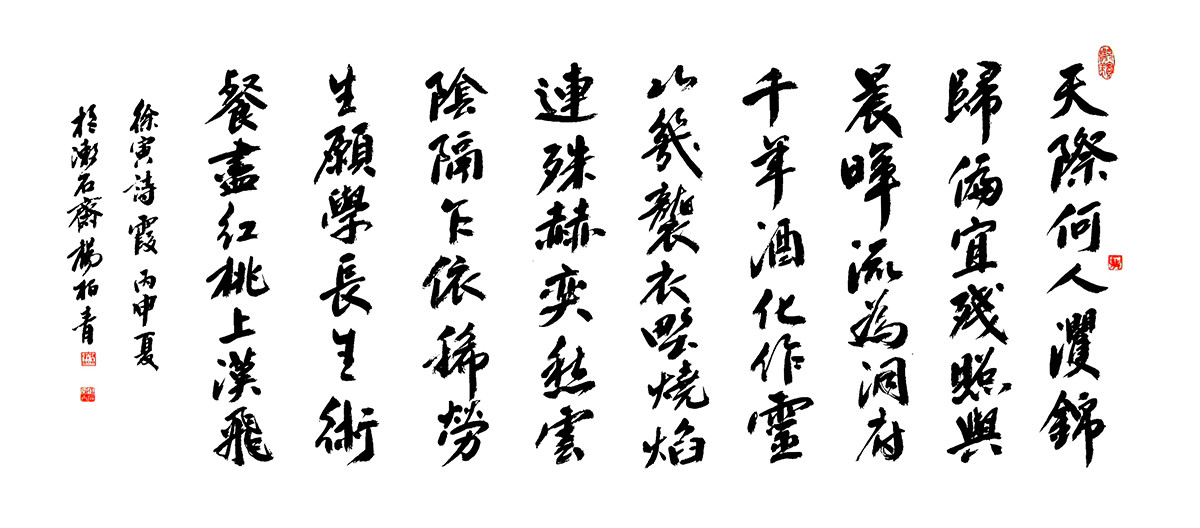 天際何人濯錦
歸偏宜殘照與
晨暉流為洞府
千年酒化作靈
山幾襲衣野燒焰
連殊赫奕愁雲
陰隔乍依稀勞
生願學長生術
餐盡紅桃上漢飛
徐寅詩霞丙申夏
於漱石齋楊柏青